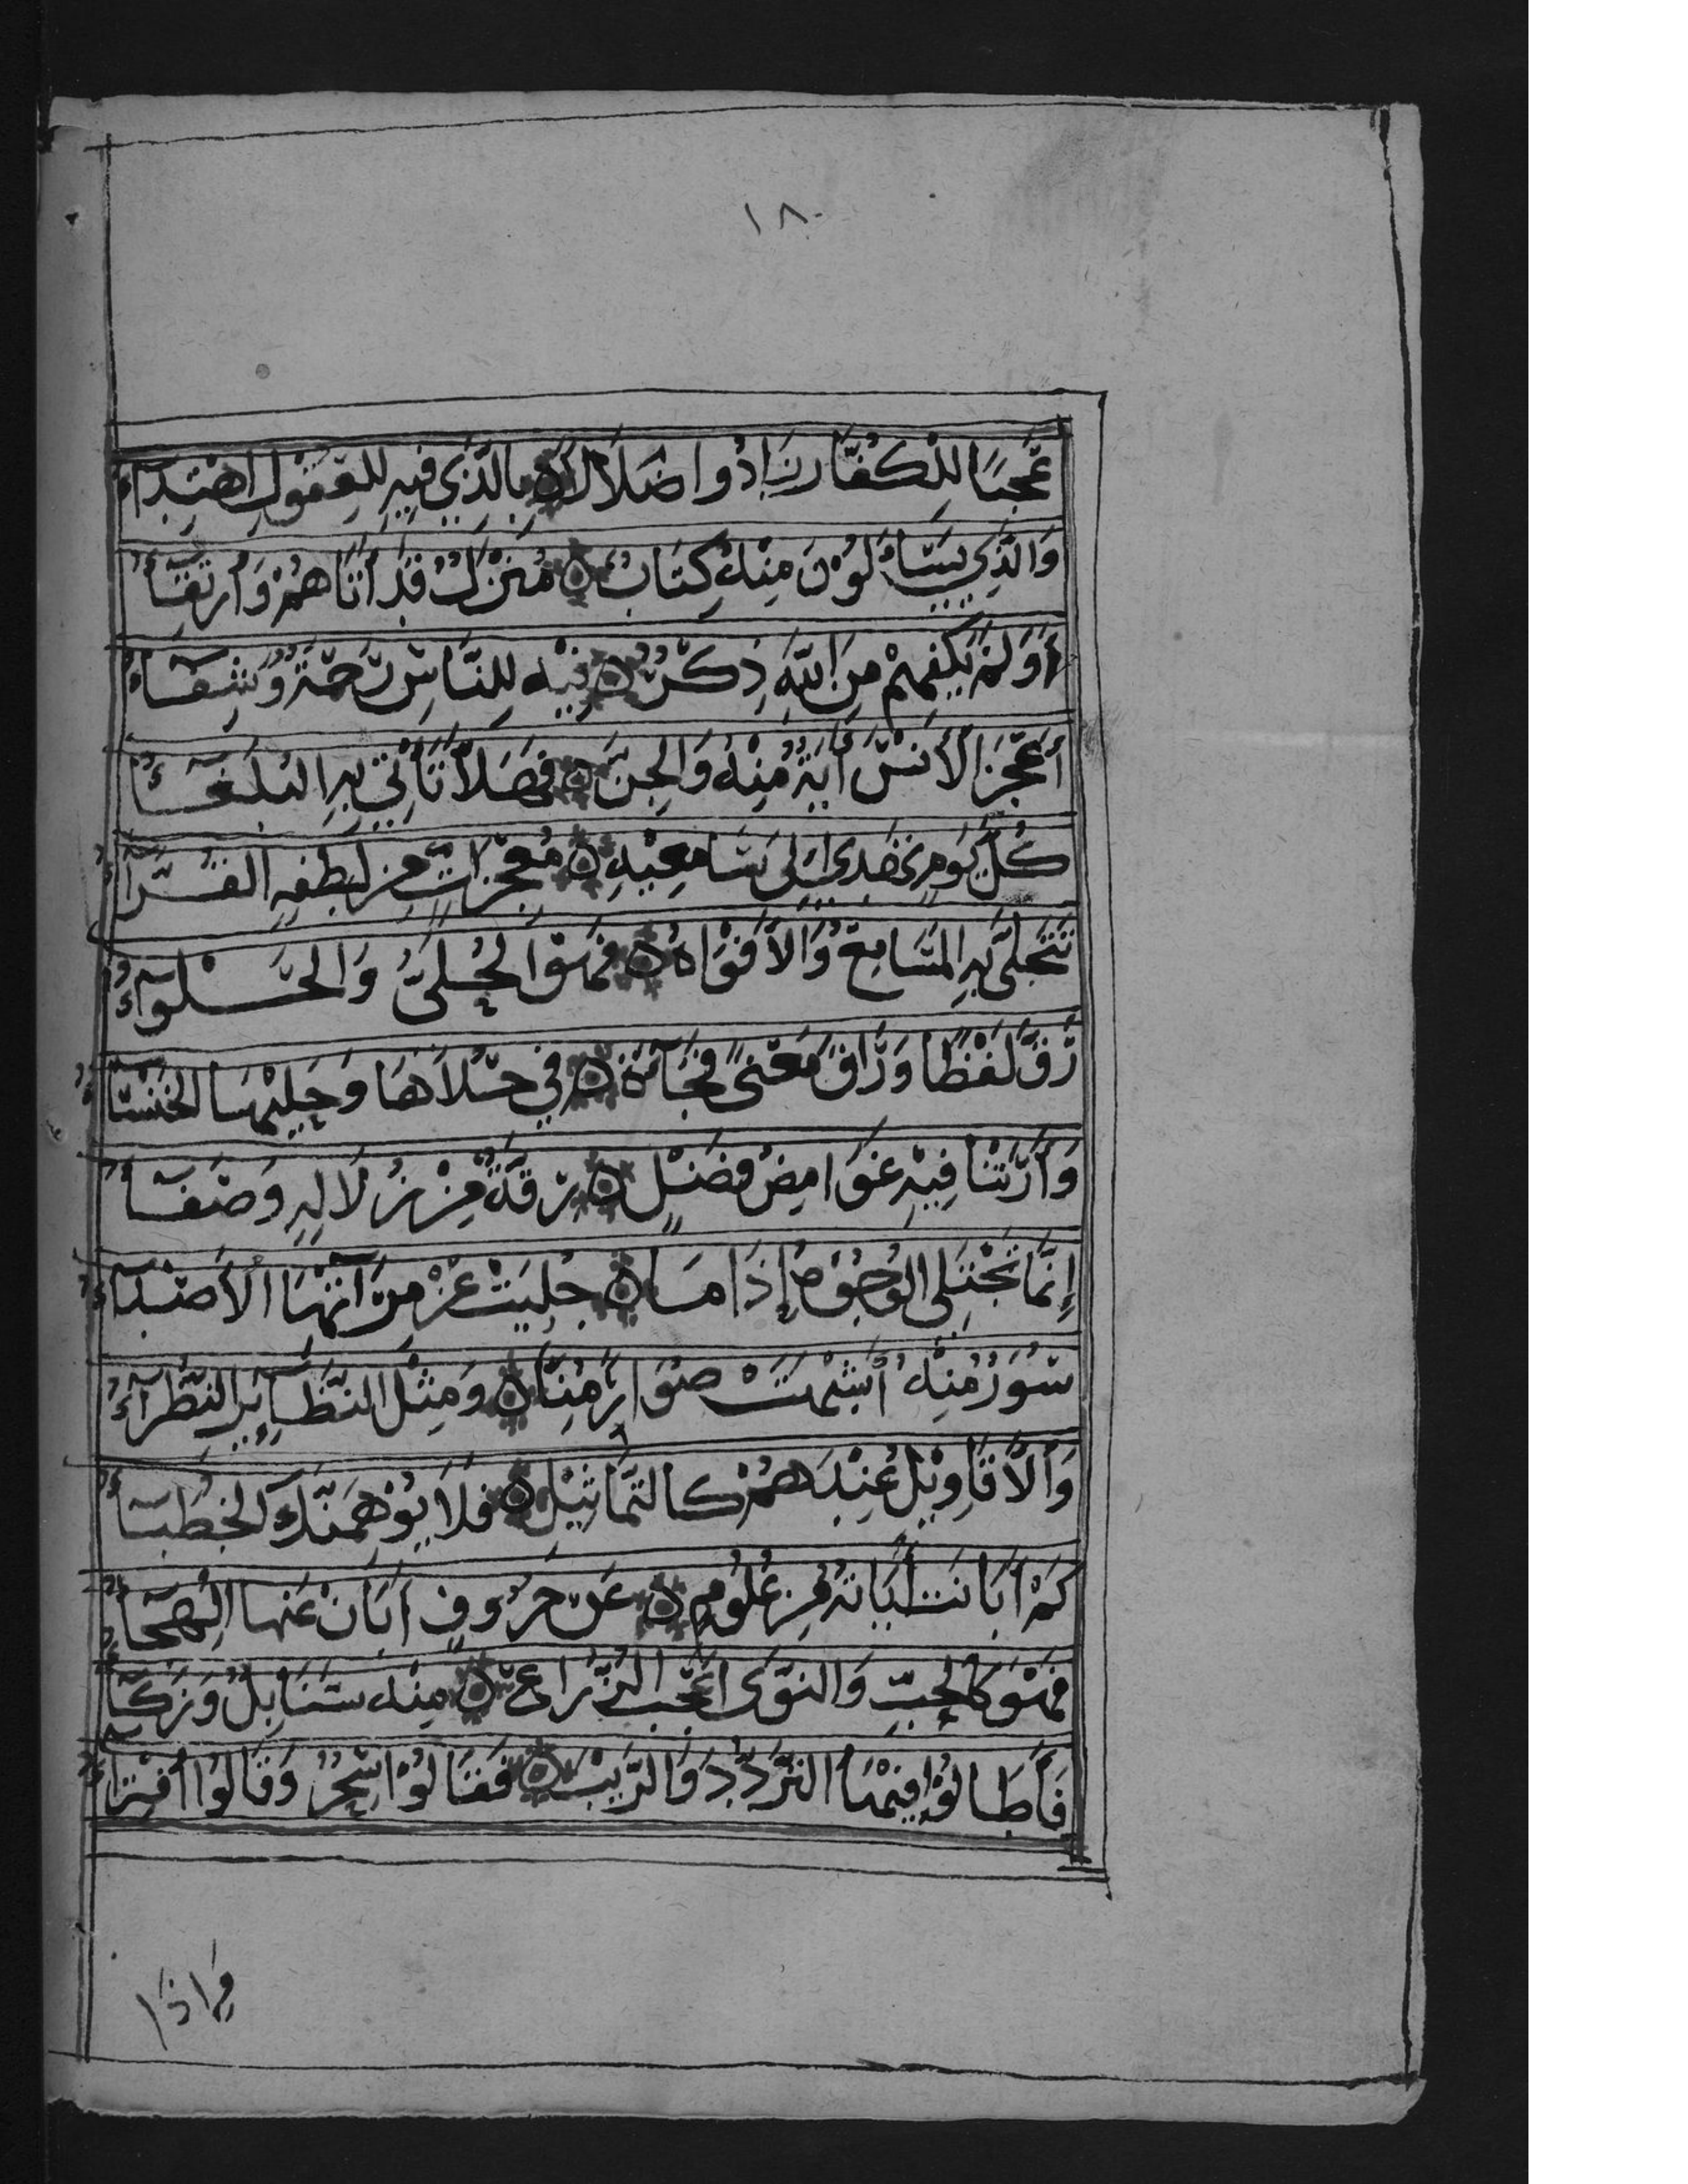 ١٨٠
عَجَبًا لِلْكُفَّارِ زَادُوا ضَلَالًا ۝ بِالَّذِي فِيهِ لِلْعُقُولِ اهْتِدَاءُ
وَالَّذِي يَسْاَءلُوْنَ مِنْهُ كِتَابٌ ۝ مُنْزَلٌ قَدْ أَتَاهُمْ وَارْتِقَاءُ
أَوَلَمْ يَكْفِهِمْ مِنَ اللّٰهِ ذِكْرٌ ۝ فِيْهِ لِلنَّاسِ رَحْمَةٌ وَشِفَاءُ
أَعْجَزَ الْأِنْسَ أَيَةٌ مِنْهُ وَالْجِنَّ ۝ فَهَلَّا تَأْتِي بِهِ الْبُلَغَاءُ
كُلَّ يَوْمٍ تَهْدِي إِلَى سَامِعِيْهِ ۝ مُعْجِزَاتٍ مِنْ لَفْظِهِ الْقُرَّاءُ
تَتَحَلَّى بِهِ الْمَسَامِعُ وَالْأَفْوَاهُ ۝ فَهُوَ الْحُلِيُّ وَالْحَلْوَاءُ
رَقَّ لَفْظًا وَرَاقَ مَعْنًى فَجَاءَتْ ۝ فِي حُلَاهَا وَحَلْيِهَا الْخَنْسَاءُ
وَأَرَتْنَا فِيْهِ غَوَامِضُ فَضْلٍ ۝ رِقَّةٌ مِنْ زُلَالِهِ وَصَفَاءُ
إِنَّمَا تُجْتَلَى الْوُجُوهُ إِذَا مَا ۝ جُلِيَتْ عَنْ مِرْآتِهَا الْأَصْدَاءُ
سُوَرٌ مِنْهُ أَشْبَهَتْ صُوَرًا مِنَّا ۝ وَمِثْلُ النَّظَائِرِ النُّظَرَاءُ
وَالْأَقَاوِيْلُ عِنْدَهُمْ كَالتَّمَاثِيْلِ ۝ فَلَا يُوْهِمَنَّكَ الْخُطَبَاءُ
كَمْ أَبَانَتْ أَيَاتُهُ مِنْ عُلُوْمٍ ۝ عَنْ حُرُوفٍ أَبَانَ عَنْهَا الْهِجَاءُ
فَهُوَ كَالْحَبِّ وَالنَّوَى أَعْجَبَ الزُّرَّاعَ ۝ مِنْهُ سَنَابِلُ وَزَكَاءُ
فَأَطَالُوْا فِيْهَا التَّرَدُّدَ وَالرَّيْبَ ۝ فَقَالُوْا سِحْرٌ وَقَالُوا افْتِرَاءُ
وَاِذَا